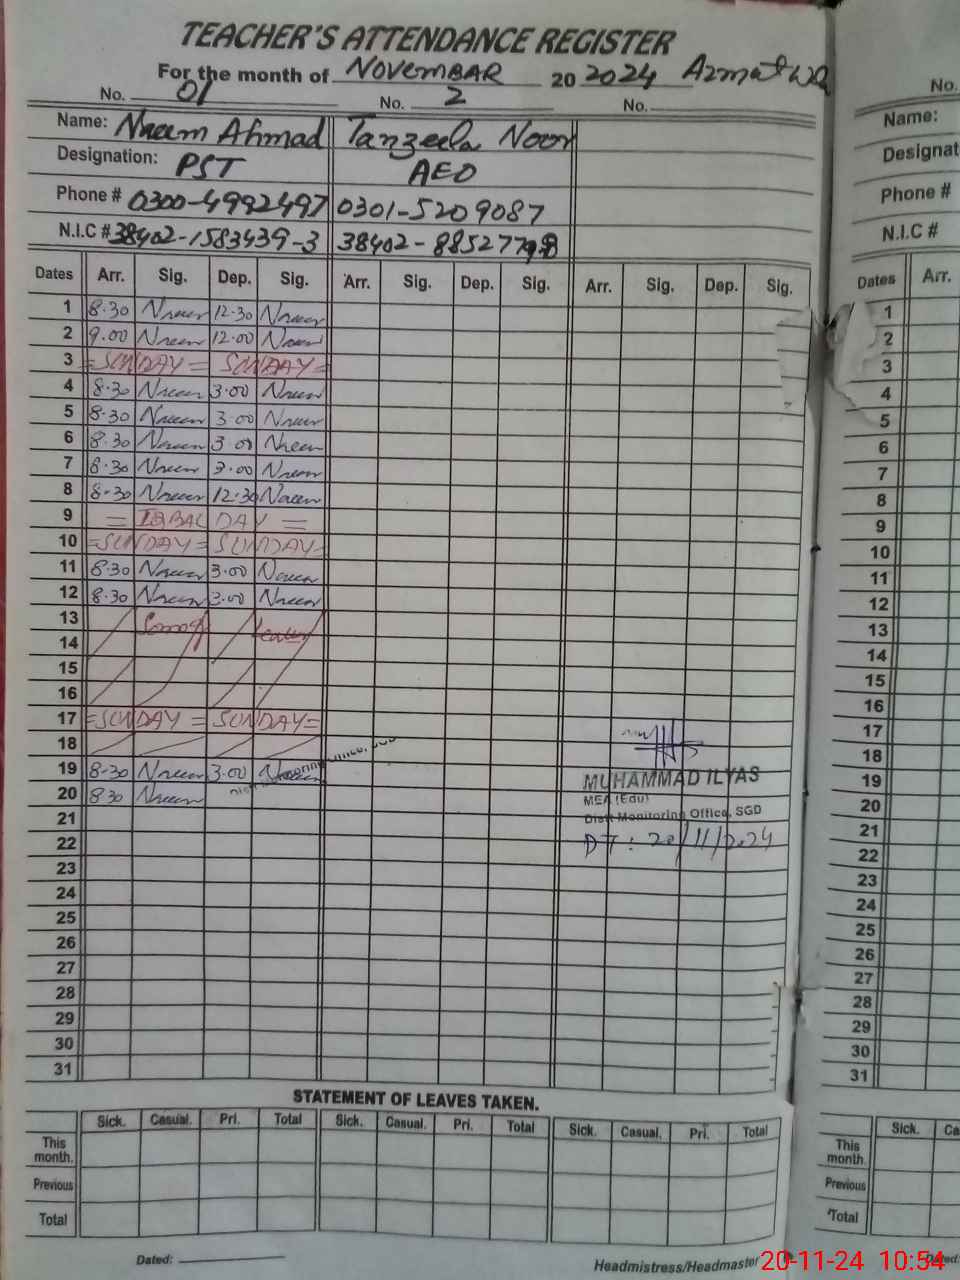 TEACHER'S ATTENDANCE REGISTER
For the month of NOVEMBAR 20 2024 Azmat
No. 01 No. 2 No.
Name: Naeem Ahmad Tanzeela Noor
Designation: PST AEO
Phone # 0300-4992497 0301-5209087
N.I.C # 38402-1583439-3 38402-8852779-8
Dates Arr. Sig. Dep. Sig. Arr. Sig. Dep. Sig. Arr. Sig. Dep. Sig.
1 8.30 Naeem 12.30 Naeem
2 9.00 Naeem 12.00 Naeem
3 =SUNDAY= SUNDAY=
4 8.30 Naeem 3.00 Naeem
5 8.30 Naeem 3.00 Naeem
6 8.30 Naeem 3.00 Naeem
7 8.30 Naeem 3.00 Naeem
8 8.30 Naeem 12.30 Naeem
9 = IQBAL DAY =
10 =SUNDAY= SUNDAY=
11 8.30 Naeem 3.00 Naeem
12 8.30 Naeem 3.00 Naeem
13
14
15
16
17 =SUNDAY = SUNDAY=
18
19 8.30 Naeem 3.00 Naeem
20 8.30 Naeem
21
22
23
24
25
26
27
28
29
30
31
MUHAMMAD ILYAS
MEA (Edu)
Distt Monitoring Office, SGD
DT: 20/11/2024
STATEMENT OF LEAVES TAKEN.
Sick. Casual. Pri. Total Sick. Casual. Pri. Total Sick. Casual. Pri. Total
This month.
Previous
Total
Dated: Headmistress/Headmaster
No.
Name:
Designat
Phone #
N.I.C #
Dates Arr.
1
2
3
4
5
6
7
8
9
10
11
12
13
14
15
16
17
18
19
20
21
22
23
24
25
26
27
28
29
30
31
Sick. Ca
This month.
Previous
Total
Dated:
20-11-24 10:54